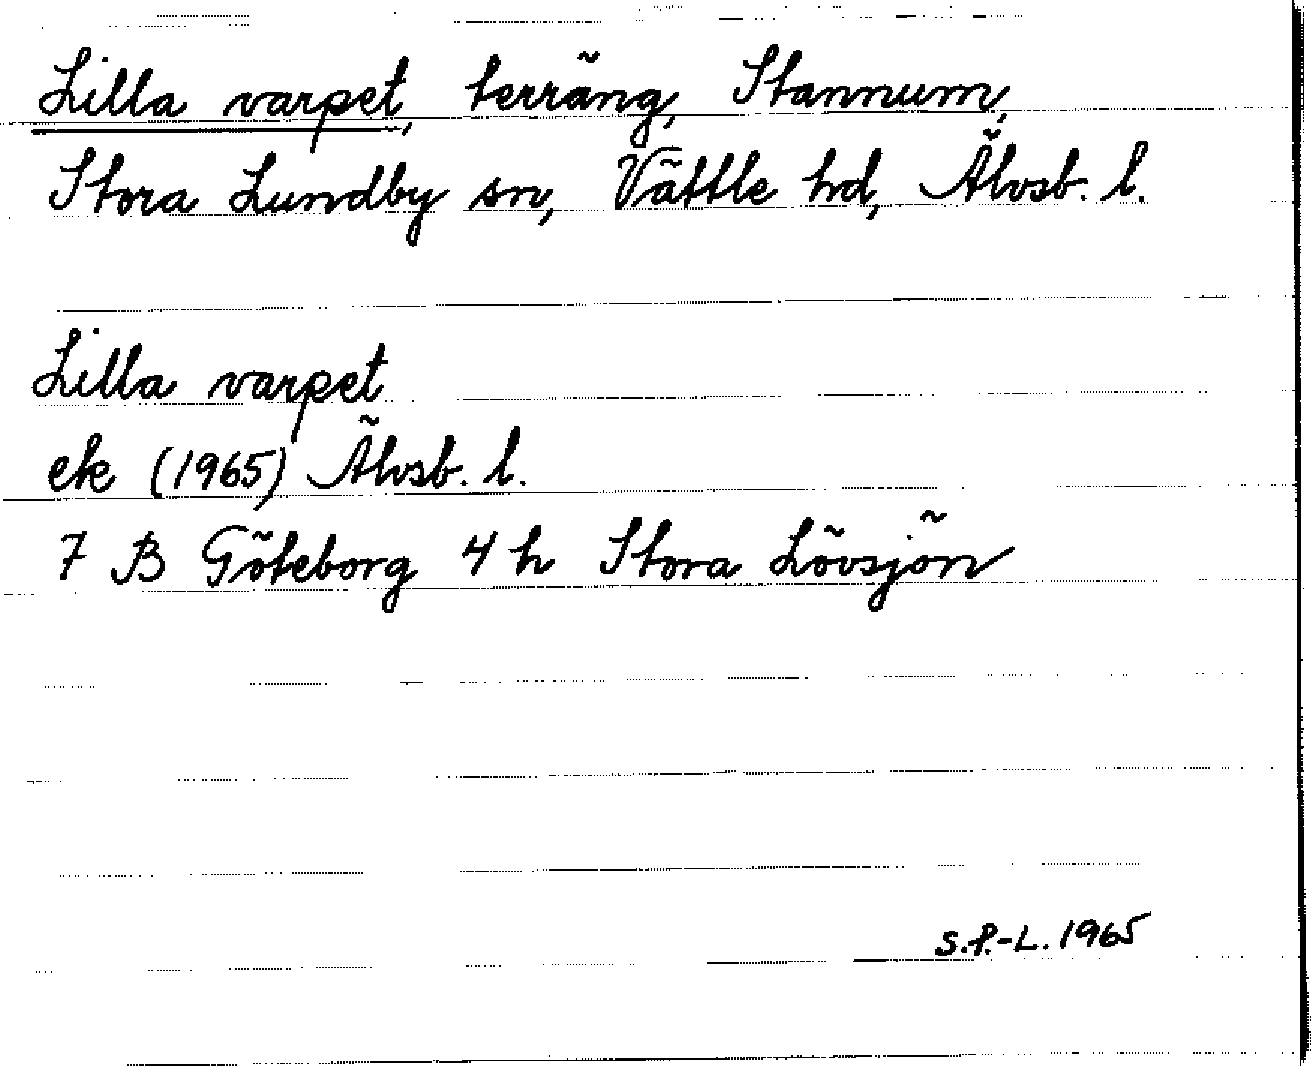 Lilla varpet, terräng, Stannum,
Stora Lundby sn, Vättle hd, Älvsb. l.
Lilla varpet
ek (1965) Älvsb. l.
7 B Göteborg 4 h Stora Lövsjön
S.P.-L. 1965